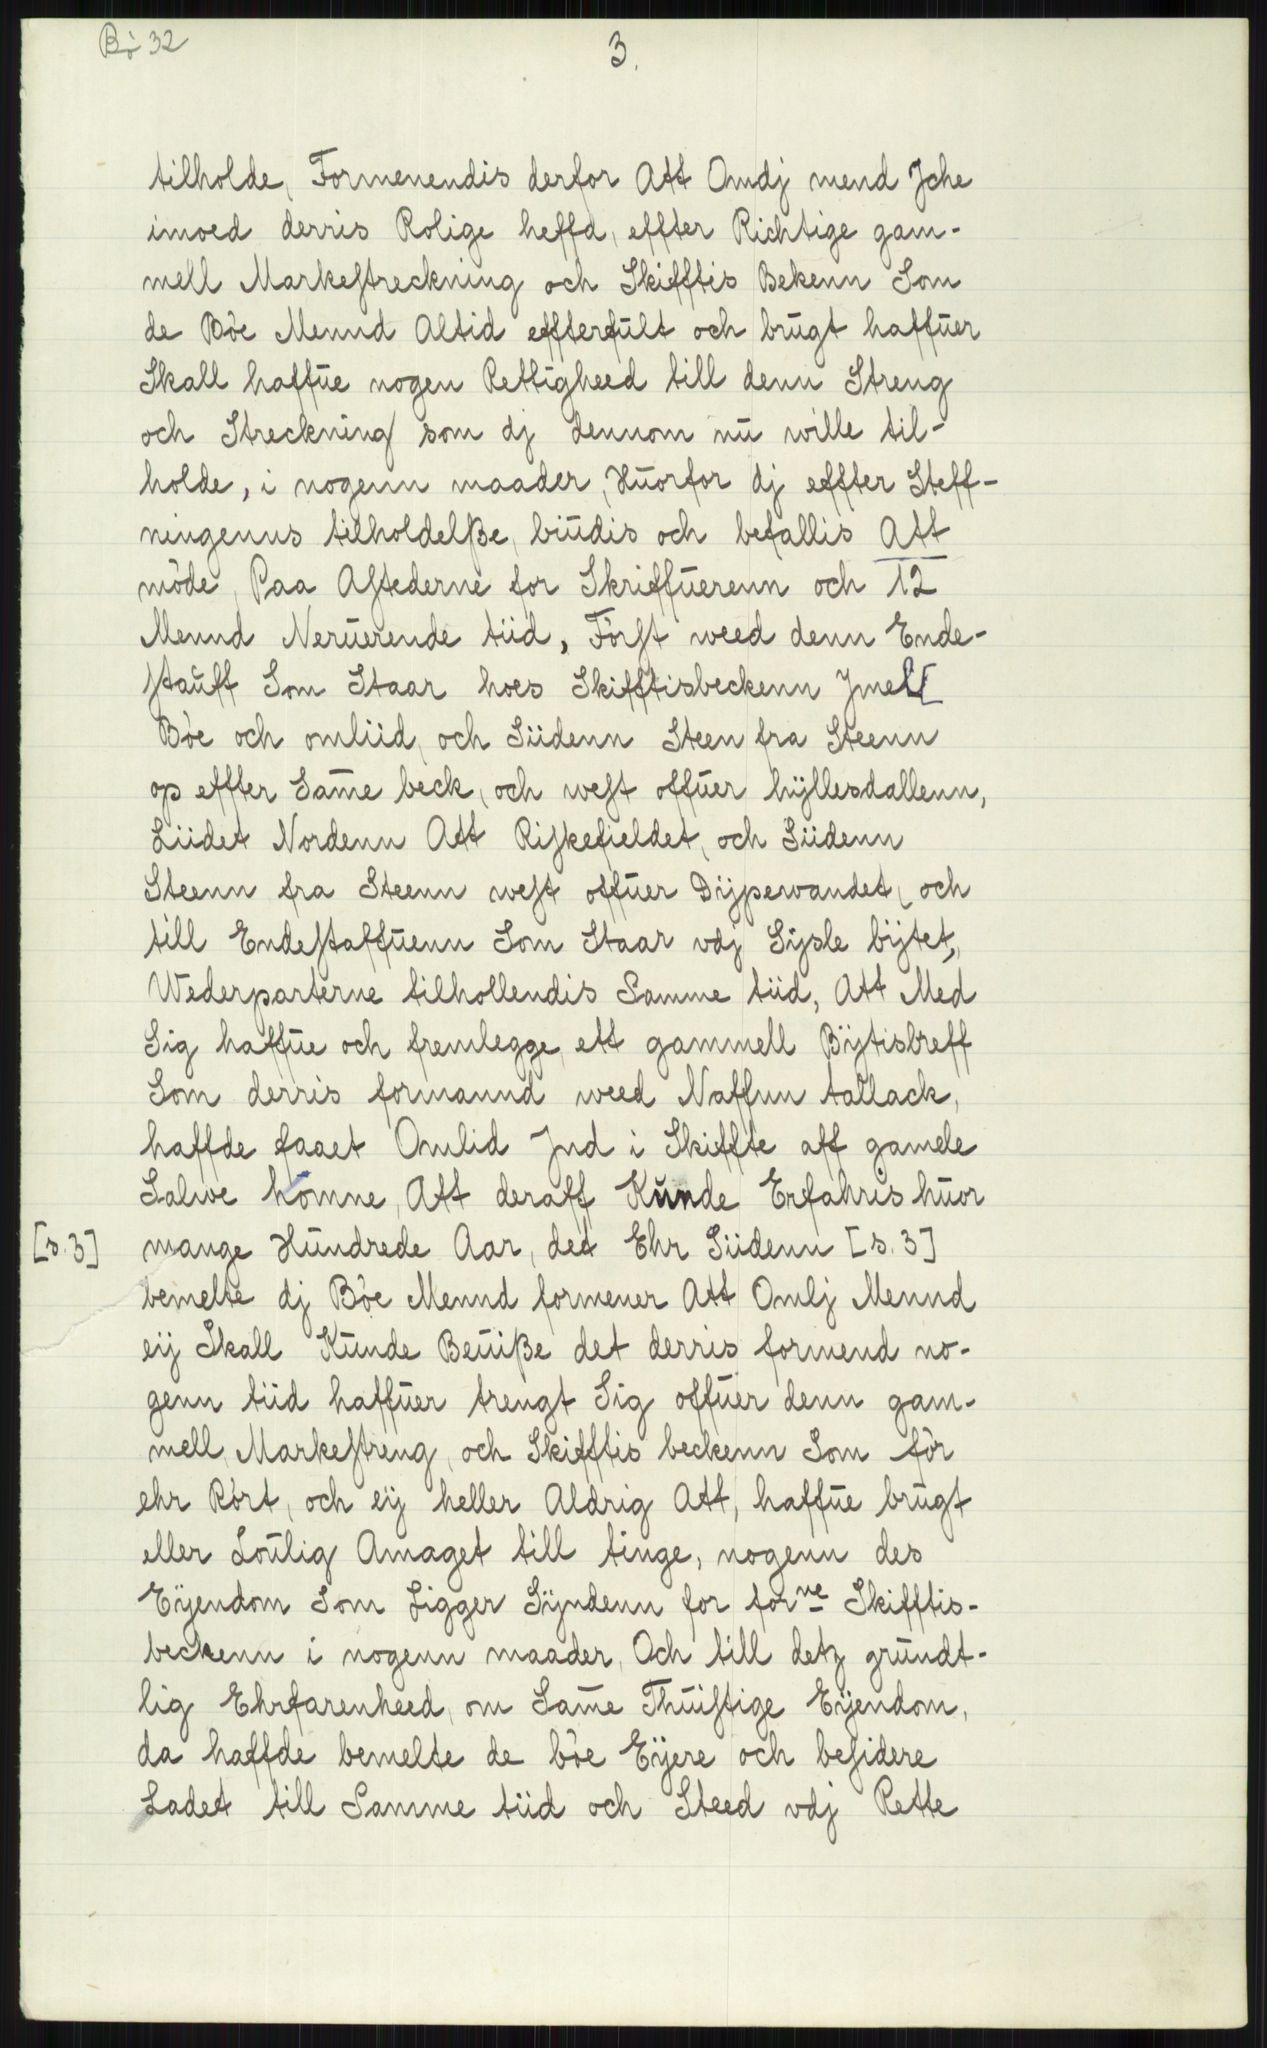 Bö 32
3.
tilholde, Formenendis derfor Att Omdj mend Jche
imoed derris Rolige heffd, effter Richtige gam-
mell Markestreckning och Skifftis Bekenn Som
de Böe Mennd Altid effterfült och brügt haffüer
Skall haffüe nogen Rettigheed till denn Streng
och Streckning som dj dennom nü wille til-
holde, i nogenn maader, Hüorfor dj effter Steff-
ningenns tilholdelße, biüdis och befallis Att
möde, Paa Astederne for Skriffüerenn och 12
Mennd Nerüerende tiid, Först weed denn Ende-
staüff Som Staar hoes Skifftisbeckenn Jmell
Böe och omliid, och Siidenn Steen fra Steenn
op effter Same beck, och west offüer hÿllesdallenn,
Liidet Nordenn Att Riskefieldet, och Siidenn
Steenn fra Steenn west offüer Dÿpewandet, och
till Endestaffüenn Som Staar vdj Sÿsle bÿtet,
Wederparterne tilhollendis Samme tiid, Att Med
Sig haffüe och fremlegge, ett gammell Bÿtisbreff
Som derris formannd weed Naffnn tallack,
haffde faaet Omlid Jnd i Skiffte aff gamele
Salwe homne, Att deraff Künde Erfahris hüor
[s. 3] mange Hündrede Aar, det Ehr Siidenn [s. 3]
bemelte dj Böe Mennd formener Att Omlj Mennd
eÿ Skall Künde Beüiße det derris formend no-
genn tiid haffüer trengt Sig offüer denn gam-
mell Markestreng, och Skifftis beckenn Som för
ehr Rört, och eÿ heller Aldrig Att, haffüe brügt
eller Loülig Amaget till tinge, nogenn des
Eÿendom Som Ligger Sÿndenn for forne Skifftis-
beckenn i nogenn maader, Och till detz gründt-
lig Ehrfarenheed, om Same Thüistige Eÿendom,
da haffde bemelte de böe Eÿere och besidere
Ladet till Samme tiid och Steed vdj Rette